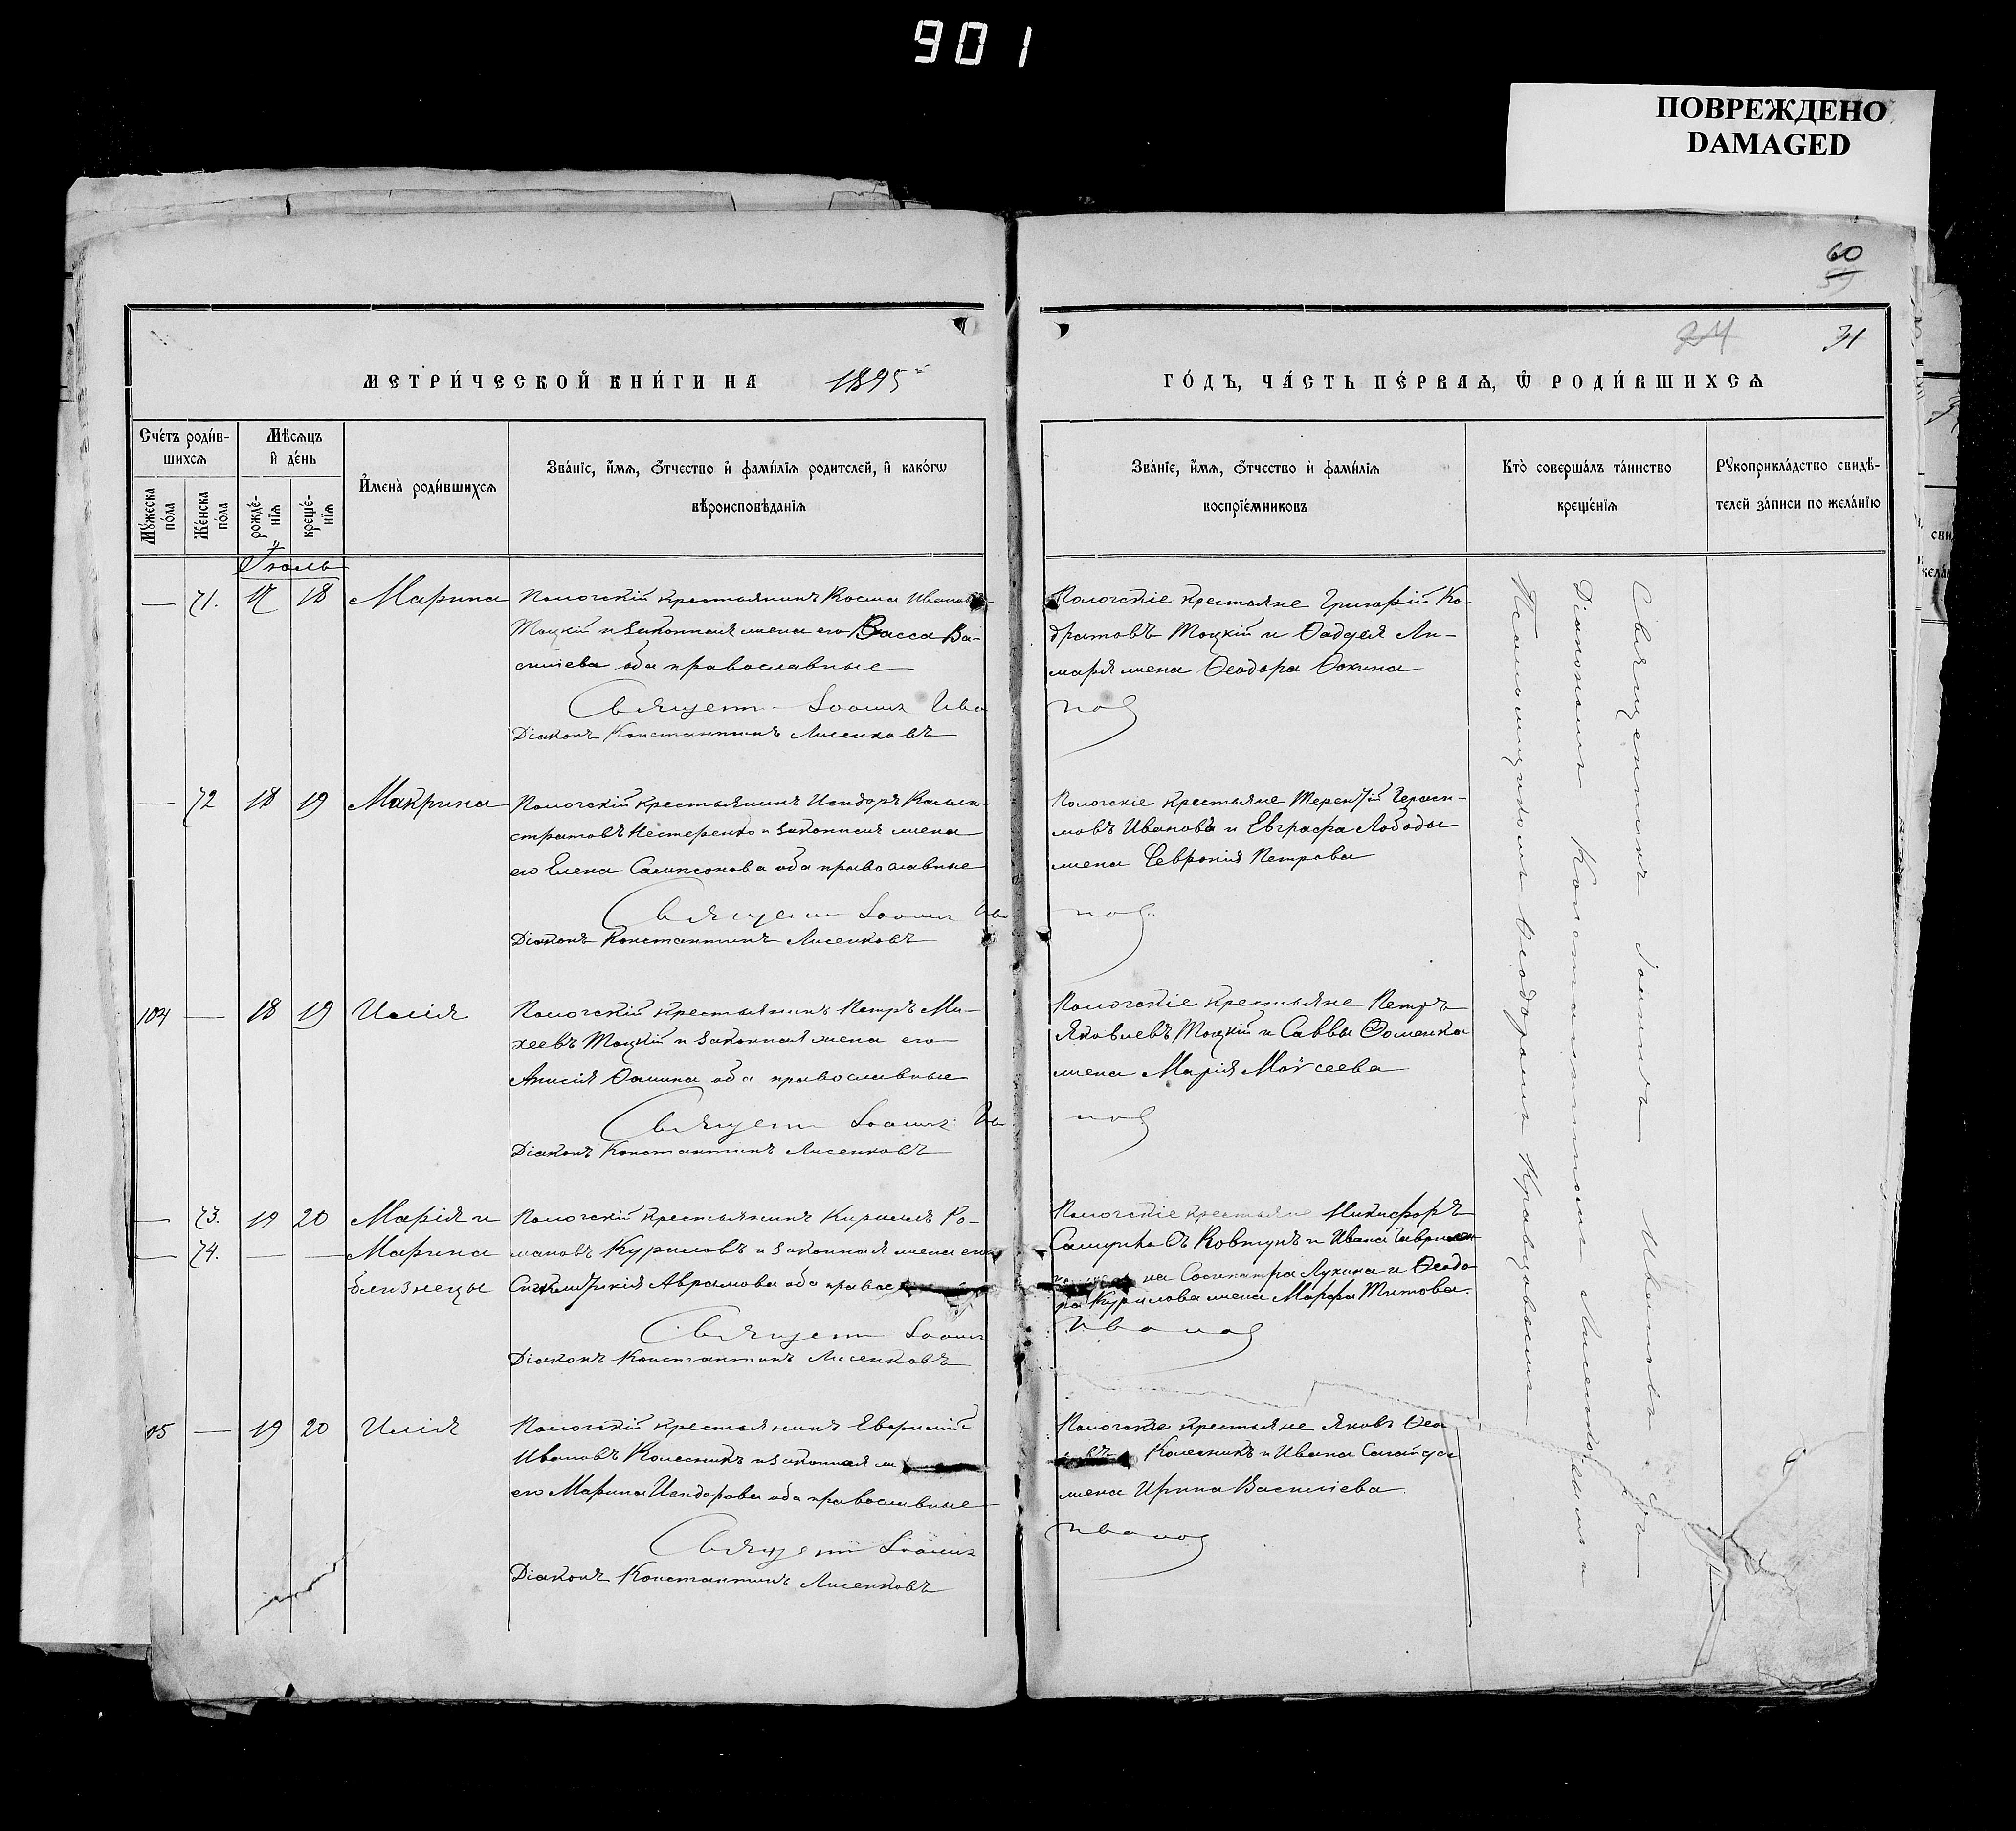 901
ПОВРЕЖДЕНО
DAMAGED
60
59
24
31
МЕТРИ́ЧЕСКОЙ КНИ́ГИ НА 1895
ГО́ДЪ, ЧА́СТЬ ПЕ́РВАѦ, Ѽ РОДИ́ВШИХСѦ
Сче́тъ роди́в-
шихсѧ
Мꙋ́жеска
по́ла
Же́нска
по́ла
Мѣсѧцъ
и҆ де́нь
рожде́-
нїѧ
креще́-
нїѧ
И҆мена̀ роди́вшихсѧ
Зва́нїе, и҆́мѧ, ѻ҆́тчество и҆ фами́лїѧ родителей, и҆ како́гѡ
вѣроисповѣданїѧ
Зва́нїе, и҆́мѧ, ѻ҆́тчество и҆ фами́лїѧ
воспрїе́мниковъ
Кто̀ соверша́лъ та́инство
креще́нїѧ
Рꙋкоприкла́дство свидѣ́-
телей за́писи по жела́нїю
Іюль
— 71. 17 18 Марина
Пологскій крестьянинъ Косма Ивановъ
Тоцкій и законная жена его Васса Ва-
силіева оба православные
Священ Іоаннъ Ива
Діаконъ Константинъ Лисенковъ
Пологскіе крестьяне Григорій Ко-
дратовъ Тоцкій и Ѳаддея Ли-
маря жена Ѳеодора Ѳокина
нов
— 72 18 19 Макрина
Пологскій крестьянинъ Исидоръ Калли-
стратовъ Нестеренко и законная жена
его Елена Сампсонова оба православные
Священ Іоаннъ Ива
Діаконъ Константинъ Лисенковъ
Пологскіе крестьяне Терентій Гераси-
мовъ Ивановъ и Евграфа Лободы
жена Февронія Петрова
нов
104 — 18 19 Илія
Пологскій крестьянинъ Петръ Ми-
хеевъ Тоцкій и законная жена его
Анисія Ѳомина оба православные
Священ Іоаннъ Ива
Діаконъ Константинъ Лисенковъ
Пологскіе крестьяне Петръ
Яковлевъ Тоцкій и Саввы Ѳоменка
жена Марія Моѵсеева
нов
— 73. 19 20 Марія и
— 74. — — Марина
близнецы
Пологскій крестьянинъ Кириллъ Ро-
мановъ Куриловъ и законная жена его
Синклитикія Аврамова оба правос
Священ Іоаннъ
Діаконъ Константинъ Лисенковъ
Пологскіе крестьяне Никифоръ
Ковтунъ и Ивана
на Сосипатра Лукина и Ѳеодо-
ра Курилова жена Марфа Титова.
Иванов
05 — 19 20 Илія
Пологскій крестьянинъ
Ивановъ Колесникъ и законная ж
его Марина Исидорова оба православные
Священ Іоаннъ
Діаконъ Константинъ Лисенковъ
Пологскіе крестьяне Яковъ Ѳео
Колесникъ и Ивана
жена Ирина Василіева.
Иванов
Священникъ Іоаннъ Ивановъ съ
Діакономъ Константиномъ Лисенковымъ и
Псаломщикомъ Ѳеодоромъ Кравцовымъ